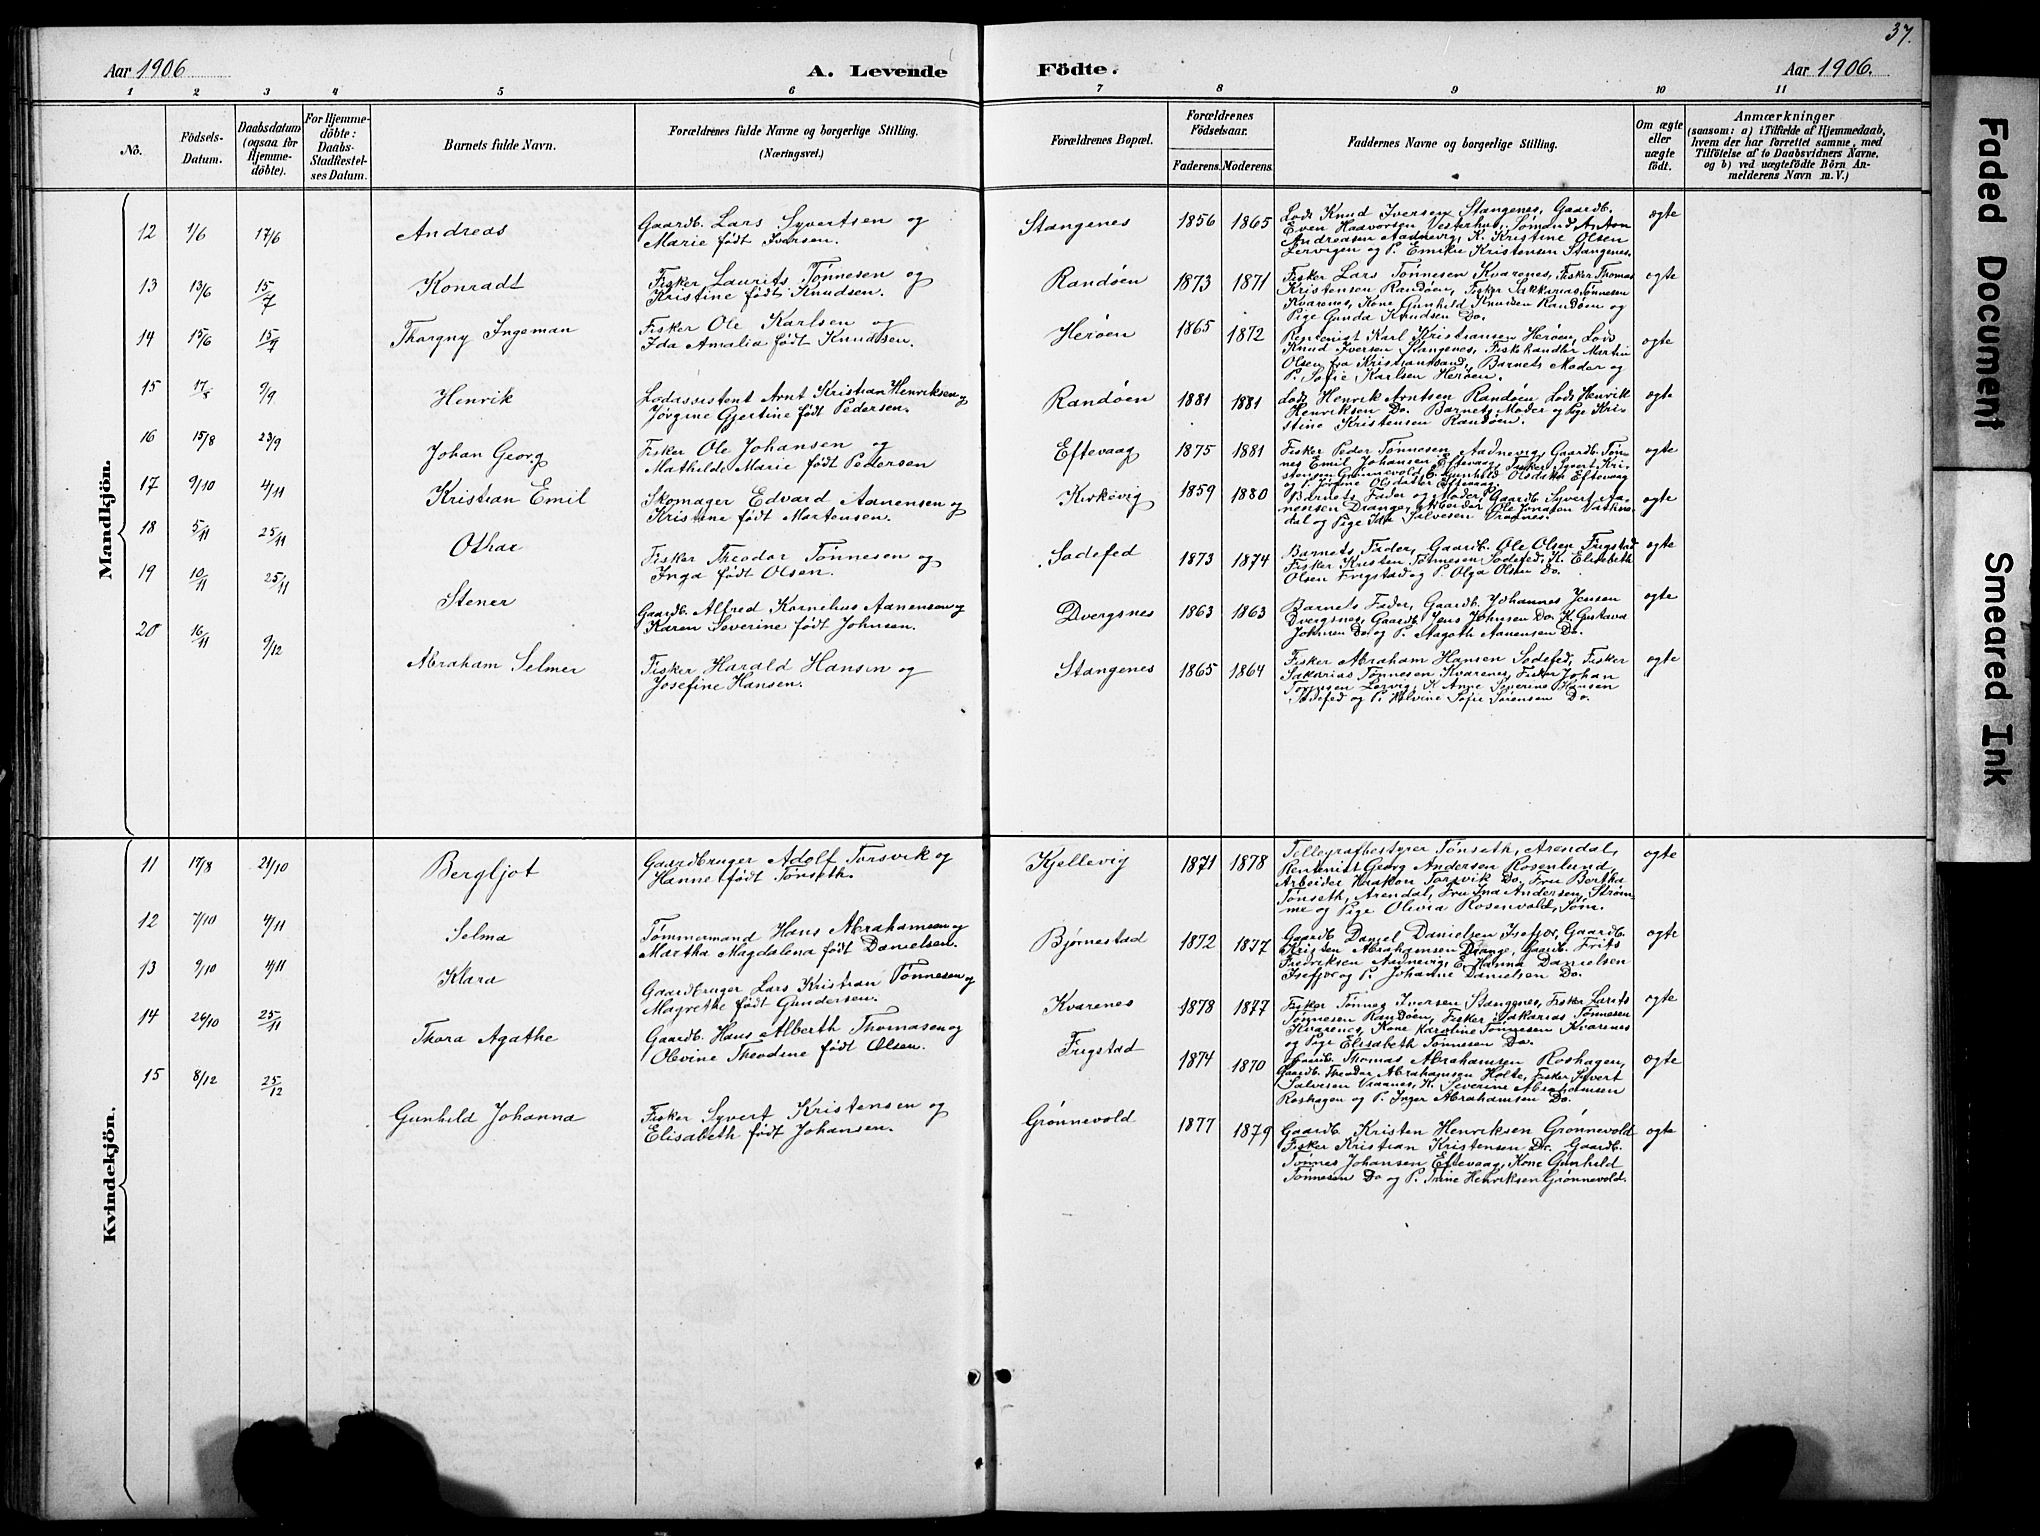 37.
Aar 1906
A. Levende Födte.
Aar 1906.
1 2 3 4 5 6 7 8 9 10 11
No.
Födsels-Datum.
Daabsdatum (ogsaa for Hjemme-döbte).
For Hjemme-döbte: Daabs-Stadfæstel-ses Datum.
Barnets fulde Navn.
Forældrenes fulde Navne og borgerlige Stilling. (Næringsvei.)
Forældrenes Bopæl.
Forældrenes Födselsaar.
Faderens. Moderens.
Faddernes Navne og borgerlige Stilling.
Om ægte eller uægte födt.
Anmærkninger
(saasom: a) i Tilfælde af Hjemmedaab, hvem der har forrettet samme, med Tilföielse af to Daabsvidners Navne, og b) ved uægtefödte Börn An-melderens Navn m. V.)
Mandkjön.
12 1/6 17/6 Andreas
Gaardb. Lars Syvertsen og
Marie født Iversen.
Stangenes 1856 1865
Lods Knud Iversen Stangenes, Gaardb.
Even Haavorsen Vesterhus, Sømand Anton
Andreasen Aadnevig, K. Kristine Olsen
Lervigen og P. Emilie Kristensen Stangenes.
ægte
13 13/6 15/7 Konradt
Fisker Laurits Tønnesen og
Kristine født Knudsen.
Randøen 1873 1871
Fisker Lars Tønnesen Kvarenes, Fisker Thomas
Kristensen Randøen, Fisker Sakkarias Tønnesen
Kvarenes, Kone Gunhild Knudsen Randøen og
Pige Gunda Knudsen Do.
ægte
14 15/6 15/7 Thorgny Ingeman
Fisker Ole Karlsen og
Ida Amalia født Knudsen.
Herøen 1865 1872
Rentenist Karl Kristiansen Herøen, Lods
Knud Iversen Stangenes, Fiskehandler Martin
Olsen fra Kristianssand, Barnets Moder og
P. Sofie Karlsen Herøen.
ægte
15 9/9 Henrik
Lodassistent Arnt Kristian Henriksen og
Jørgine Gjertine født Pedersen.
Randøen 1881 1881
Lods Henrik Arntsen Randøen Lods Henrik
Henriksen Do. Barnets Moder og Pige Kri-
stine Kristensen Randøen.
ægte
16 15/8 23/9 Johan Georg
Fisker Ole Johansen og
Mathilde Marie født Pedersen
Eftevaag 1875 1881
Fisker Peder Tønnesen Aadnevig, Gaardb. Tøn-
nes Emil Johansen Eftevaag, Fisker Syvert Kri-
stensen Grønnevold E. Gunhild Olsdatter Eftevaag
og P. Jørgine Olsdatter Eftevaag.
ægte
17 9/10 4/11 Kristian Emil
Skomager Edvard Aanensen og
Kristine født Mortensen.
Kirkevig 1859 1880
Barnets Fader og Moder, Gaardb. Syvert Aa-
nensen Drange, Arbeider Ole Jonason Vatne-
dal og Pige Ida Salvesen Vraanes.
ægte
18 5/11 25/11 Othar
Fisker Theodor Tønnesen og
Inga født Olsen.
Sodefed 1873 1874
Barnets Fader, Gaardb. Ole Olsen Frigstad
Fisker Kristen Tønnesen Sodefed, K. Elisabeth
Olsen Frigstad og P. Olga Olsen Do.
ægte
19 10/11 25/11 Stener
Gaardb. Alfred Kornelius Aanensen og
Karen Severine født Johnsen.
Dvergsnes 1863 1863
Barnets Fader, Gaardb. Johannes Jensen
Dvergsnes, Gaardb. Jens Johnsen Do. K. Gustava
Johnsen Do og P. Aagoth Aanensen Do.
ægte
20 16/11 9/12 Abraham Selmer
Fisker Harald Hansen og
Josefine Hansen.
Stangenes 1865 1864
Fisker Abraham Hansen Sodefed, Fisker
Sakarias Tønnesen Kvarenes, Fisker Johan
Tønnesen Lervig, K. Anne Severine Hansen
Sodefed og P. Helvine Sofie Sørensen Do.
ægte
Kvindekjön.
11 17/8 21/10 Bergljot
Gaardbruger Adolf Torsvik og
Hanne født Tønseth.
Kjellevig 1871 1878
Tellegrafbestyrer Tønseth, Arendal,
Rentenist Georg Andersen Rosenlund,
Arbeider Haakon Torsvik Do. Fru Bertha
Tønseth, Arendal, Fru Ina Andersen, Strøm-
me og Pige Olivia Rosenvold, Søm.
ægte
12 7/10 4/11 Selma
Tømmermand Hans Abrahamsen og
Martha Magdalena født Danielsen.
Bjørnestad 1872 1877
Gaardb. Daniel Danielsen Isefjor, Gaardb.
Kristen Abrahamsen Drange, Gaardb. Frits
Fredriksen Aadnevig, E. Hanna Danielsen
Isefjor og P. Johanne Danielsen Do.
ægte
13 9/10 4/11 Klara
Gaardbruger Lars Kristian Tønnesen og
Magrethe født Gundersen.
Kvarenes 1878 1877
Fisker Tønnes Iversen Stangenes, Fisker Larits
Tønnesen Randøen, Fisker Sakarias Tønnesen
Kvarenes, Kone Karoline Tønnesen Kvarenes
og Pige Elisabeth Tønnesen Do.
ægte
14 24/10 25/11 Thora Agathe
Gaardb. Hans Alberth Thomasen og
Olevine Theodine født Olsen.
Frigstad 1874 1870
Gaardb. Thomas Abrahamsen Roshagen,
Gaardb. Theodor Abrahamsen Holte, Fisker Syvert
Salvesen Vraanes, K. Severine Abrahamsen
Roshagen og P. Inger Abrahamsen Do.
ægte
15 8/12 25/12 Gunhild Johanna
Fisker Syvert Kristensen og
Elisabeth født Johansen.
Grønnevold 1877 1879
Gaardb. Kristen Henriksen Grønnevold
Fisker Kristian Kristensen Do. Gaardb.
Tønnes Johansen Eftevaag, Kone Gunhild
Tønnesen Do og P. Trine Henriksen Grønnevold.
ægte
Faded Document
Smeared Ink